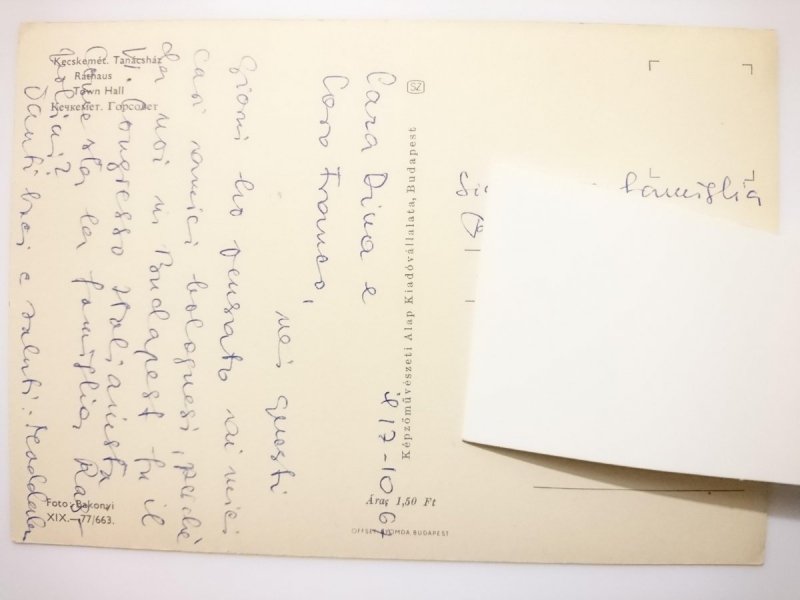 Kecskemét. Tanácsház
Rathaus
Town Hall
Кечкемет. Горсовет
il 17-10-67
Cara Dina e
Caro Franco,
nei questi
giorni ho pensato ai miei
cari amici bolognesi, perché
da noi in Budapest fu il
VI. Congresso Italianista
Come sta la famiglia
Tanti baci e saluti: Maddalena
SZ
Képzőművészeti Alap Kiadóvállalata, Budapest
famiglia
Foto: Bakonyi
XIX.—77/663.
Ára: 1,50 Ft
OFFSET NYOMDA BUDAPEST